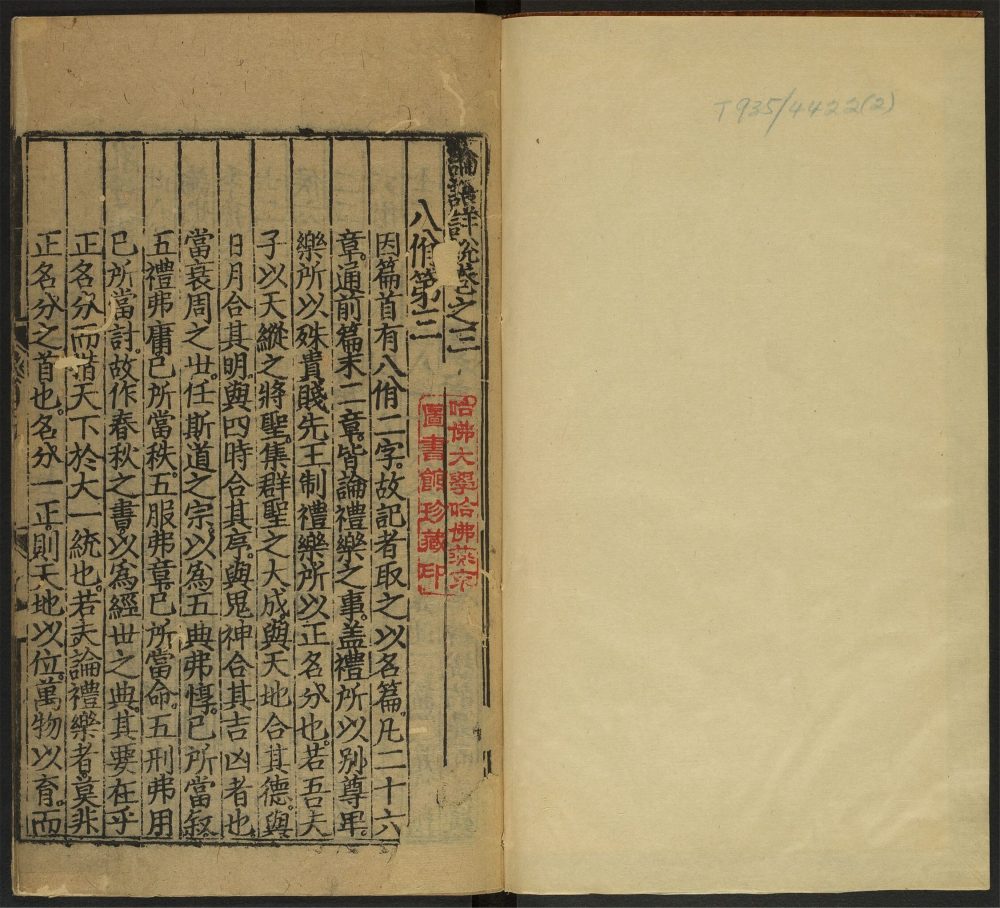 T935/4422(2)
論語詳說卷之三
八佾第三
因篇首有八佾二字。故記者取之以名篇。凡二十六
章。通前篇末二章。皆論禮樂之事。盖禮所以別尊卑。
樂所以殊貴賤先王制禮樂所以正名分也。若吾夫
子以天縱之將聖。集群聖之大成。與天地合其德。與
日月合其明。與四時合其序。與鬼神合其吉凶者也
當衰周之世。任斯道之宗。以為五典弗惇。已所當叙
五禮弗庸。已所當秩。五服弗章。已所當命。五刑弗用
已所當討。故作春秋之書以為經世之典。其要在乎
正名分而措天下於大一統也。若夫論禮樂者。莫非
正名分之首也。名分一正。則天地以位。萬物以育。而
哈佛大學哈佛燕京
圖書館珍藏印